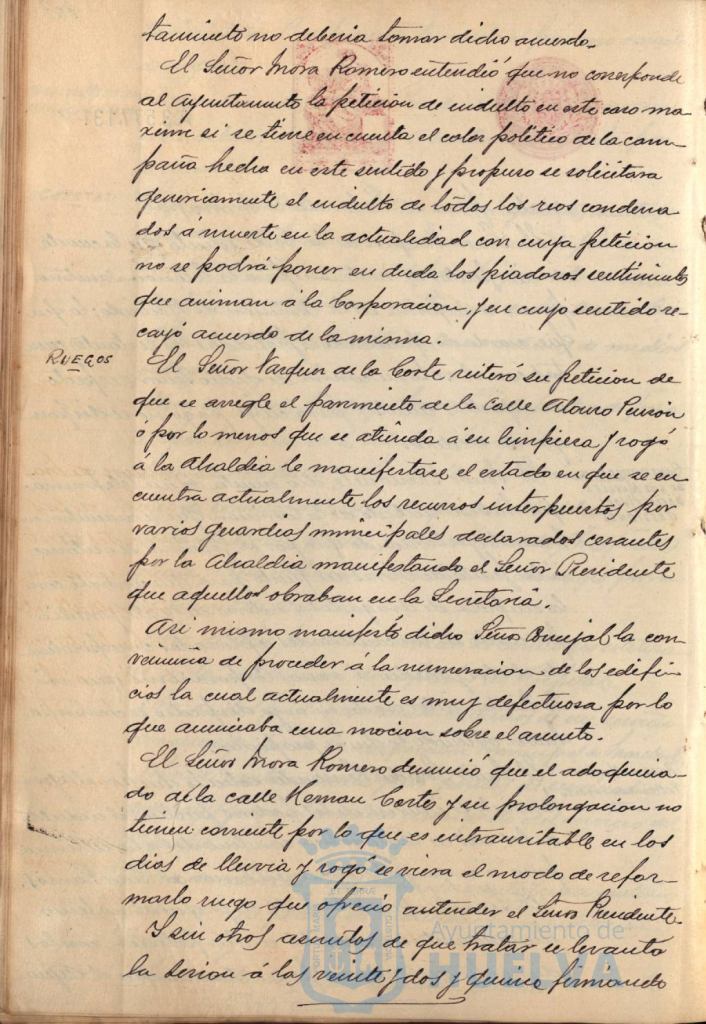 tamiento no deberia tomar dicho acuerdo.
El Señor Mora Romero entendió que no corresponde
al Ayuntamiento la peticion de indulto en este caso ma-
xime si se tiene en cuenta el color politico de la cam-
paña hecha en este sentido y propuso se solicitara
genericamente el indulto de todos los reos condena
dos á muerte en la actualidad con cuya peticion
no se podrá poner en duda los piadosos sentimientos
que animan á la Corporacion, y en cuyo sentido re-
cayó acuerdo de la misma.
RUEGOS
El Señor Vazquez de la Corte reiteró su peticion de
que se arregle el pavimento de la Calle Alonso Pinzón
ó por lo menos que se atienda á su limpieza y rogó
á la Alcaldia le manifestase el estado en que se en
cuentra actualmente los recursos interpuestos por
varios guardias municipales declarados cesantes
por la Alcaldia manifestando el Señor Presidente
que aquellos obraban en la Secretaría.
Asi mismo manifestó dicho Señor Concejal la con-
veniencia de proceder á la numeracion de los edifi-
cios la cual actualmente es muy defectuosa por lo
que anunciaba una mocion sobre el asunto.
El Señor Mora Romero denunció que el adoquina-
do de la calle Hernan Cortes y su prolongacion no
tienen corriente por lo que es intransitable en los
dias de lluvia y rogó se viera el modo de refor-
marlo ruego que ofreció antender el Señor Presidente.
Y sin otros asuntos de que tratar se levanto
la sesion á las veinte y dos y quince firmando
Ayuntamiento de
HUELVA